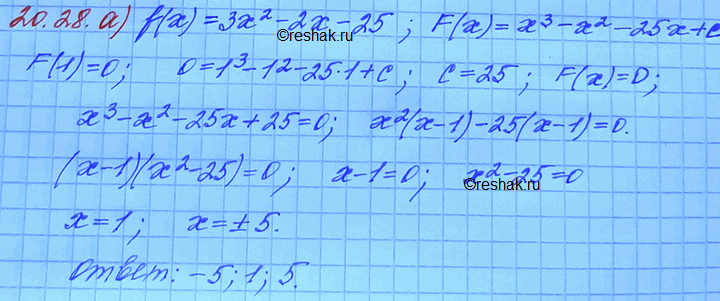 20.28. а) f(x) = 3x² - 2x - 25 ; F(x) = x³ - x² - 25x + c
©reshak.ru
F(1) = 0; 0 = 1³ - 1² - 25·1 + c; c = 25 ; F(x) = 0;
x³ - x² - 25x + 25 = 0; x²(x-1) - 25(x-1) = 0.
(x-1)(x² - 25) = 0; x - 1 = 0; x² - 25 = 0
©reshak.ru
x = 1 ; x = ± 5.
Ответ: -5; 1; 5.